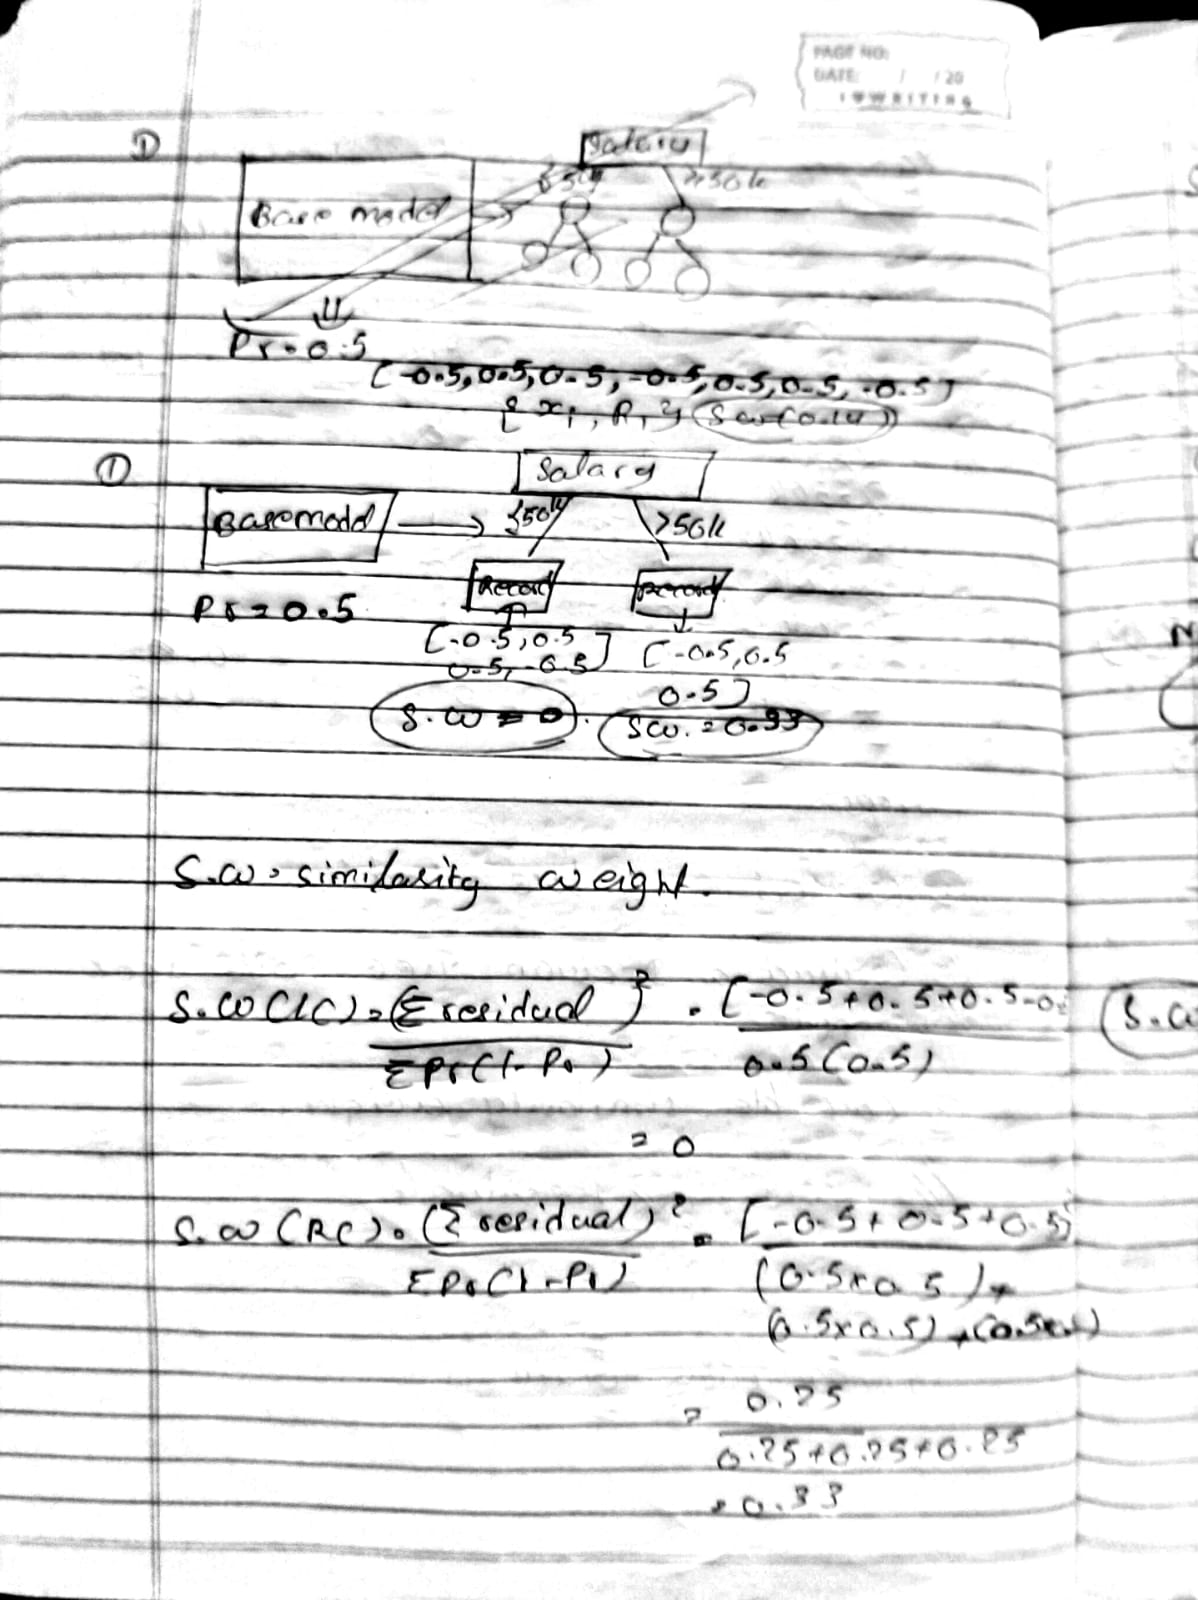 PAGE NO:
DATE: / / 20
WRITING
① Salary
≤50k >50k
Base model
Pr = 0.5
[-0.5, 0.5, 0.5, -0.5, 0.5, 0.5, -0.5]
{ x1, R1 } (Sw (0.14))
① Salary
Base model → ≤50k >50k
Record Record
Pr = 0.5
[-0.5, 0.5 [-0.5, 0.5
0.5, -0.5] 0.5]
S.W = 0. SW. = 0.33
S.W = similarity weight.
S.W (LC) = (Σ residual)² = [-0.5+0.5+0.5-0.
ΣPr(1-Pr) 0.5(0.5)
S.W
= 0
S.W (RC) = (Σ residual)² = [-0.5+0.5+0.5]
ΣPr(1-Pr) (0.5×0.5)+
(0.5×0.5)+(0.5×
= 0.25
0.25+0.25+0.25
= 0.33